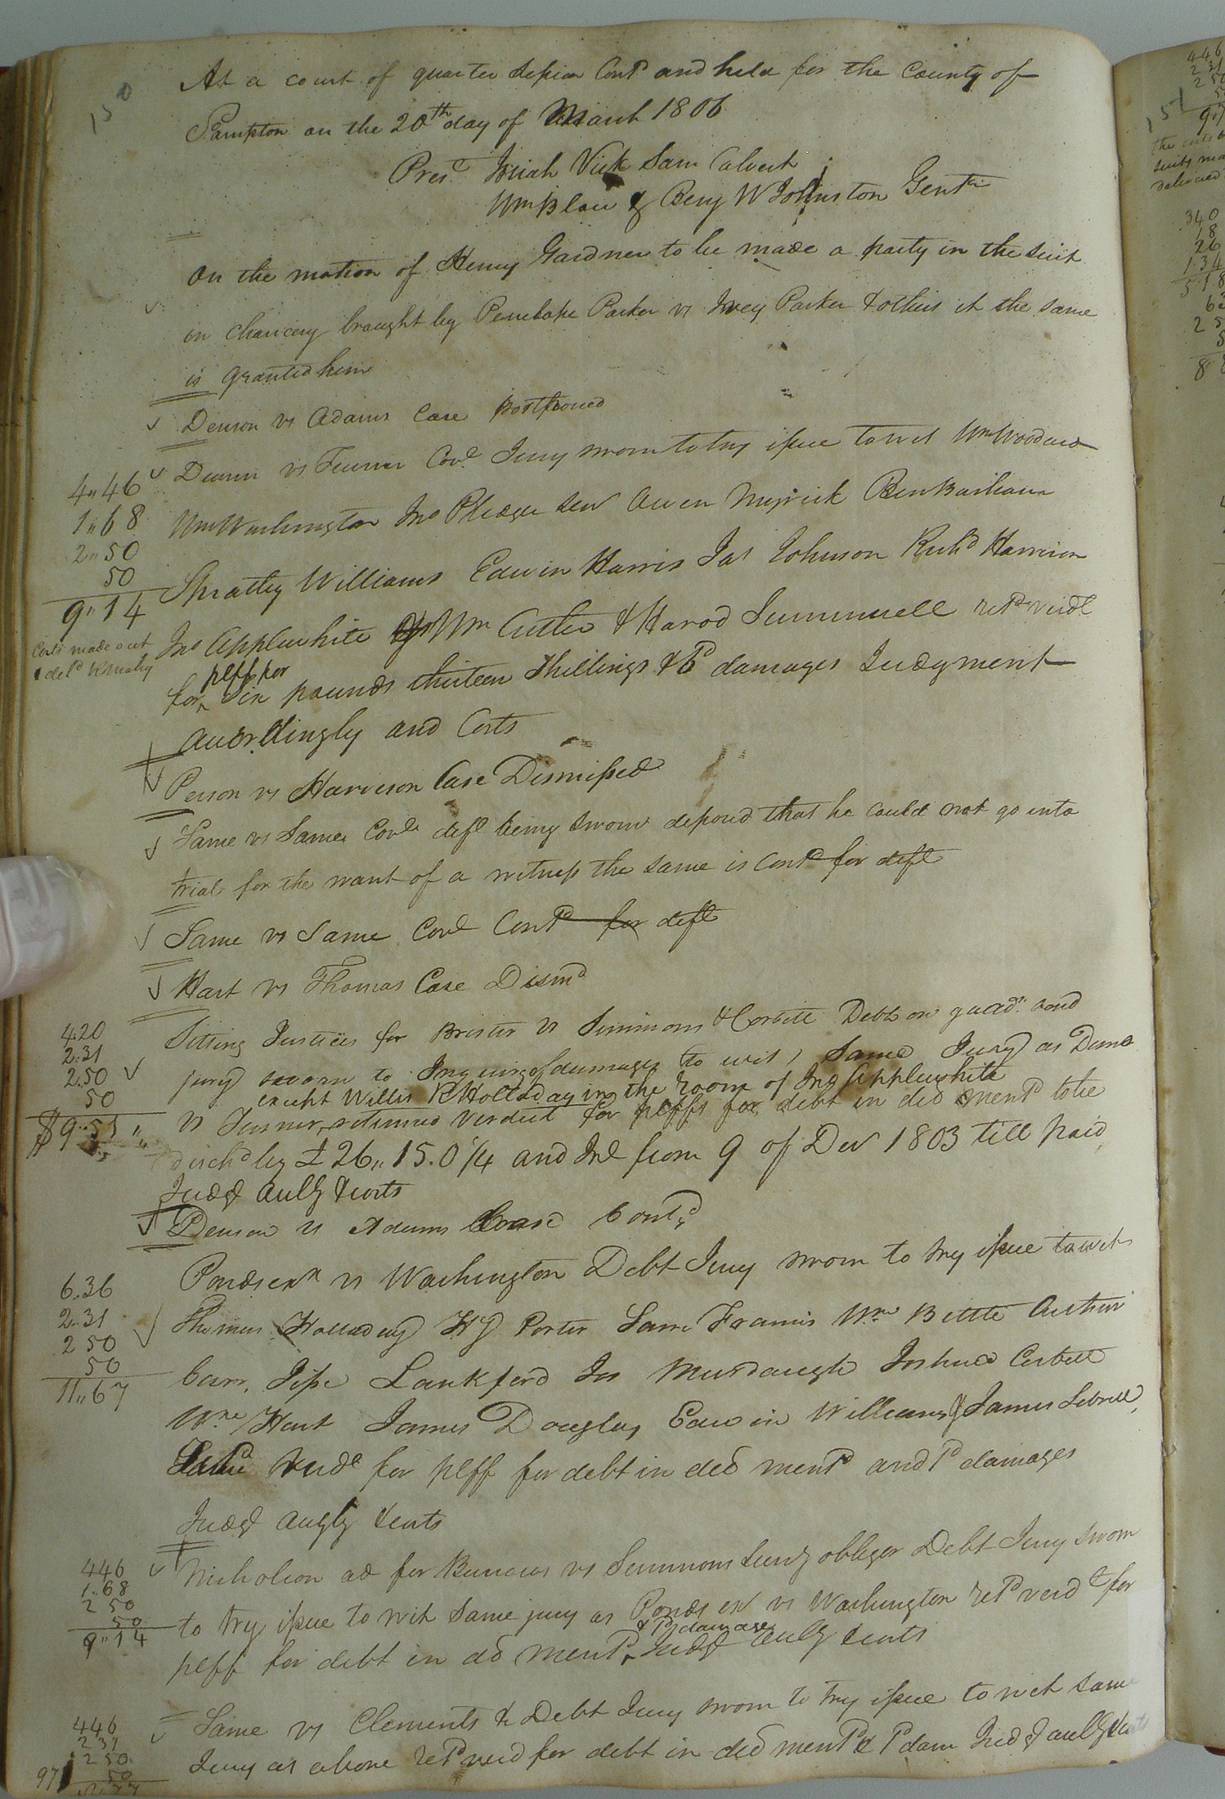 150
At a court of quarter Session Contd and held for the County of
Sampton on the 20th day of March 1806
Presd Josiah Vick Sam Calvert
Wm Blow & Benj W Johnston Gentn
On the motion of Henry Gardner to be made a party in the suit
in Chancery brought by Penelope Parker vs Ivey Parker & others it the same
is granted him
Denson vs Adams Case Postponed
Denson vs Turner Covt Jury sworn to try issue to wit Wm Woodard
4"46
Wm Washington Jno Pledger Senr Owen Myrick Ben Barham
1"68
2"50
Spratley Williams Edwin Harris Jas Johnson Richd Harrison
50
9"14
Jno Applewhite Wm Cutler & Harod Summerell retd verdt
Costs made out
& deld
plff for
for Six pounds thirteen Shillings & 1d damages Judgment
accordingly and Costs
Person vs Harrison Case Dismissed
Same vs Same Covt deft being sworn deposed that he could not go into
trial for the want of a witness the same is Contd for deft
Same vs Same Covt Contd for deft
Hart vs Thomas Case Dismd
4.20
Sitting Justices for Brister vs Simmons & Corbitt Debt on guadn bond
2.31
2.50
jury sworn to Inquire of damages to wit, Same Jury as Denson
50
except Willis R Holladay in the room of Jno Applewhite
$9"51
vs Turner, returned verdict for plffs for debt in decl mentd to be
dischd by £26"15.0¼ and Int from 9 of Decr 1803 till paid
Judgt accly & costs
Denson vs Adams Case Contd
Ponds exr vs Washington Debt Jury sworn to try issue to wit
6.36
2.31
Thomas Holladay Hy Porter Sam Francis Wm Bittle Arthur
2 50
50
Carr, Jesse Lankford Jas Murdaugh Joshua Corbett
11"67
Wm Hart James Douglas Edwin Williams & James Sebrell,
verdt for plff for debt in decl mentd and 1d damages
Judgt accgly & costs
446
Nicholson ad for vs Simmons obligor Debt Jury sworn
1.68
2 50
to try issue to wit same jury as Ponds exr vs Washington retd verdt for
50
9"14
& 1d damages
plff for debt in dcl mentd Judgt accly & costs
446
Same vs Clements & Debt Jury sworn to try issue to wit same
231
250
Jury as above retd verd for debt in decl mentd & 1d dam Judgt accly & costs
50
151
340
18
26
134
518